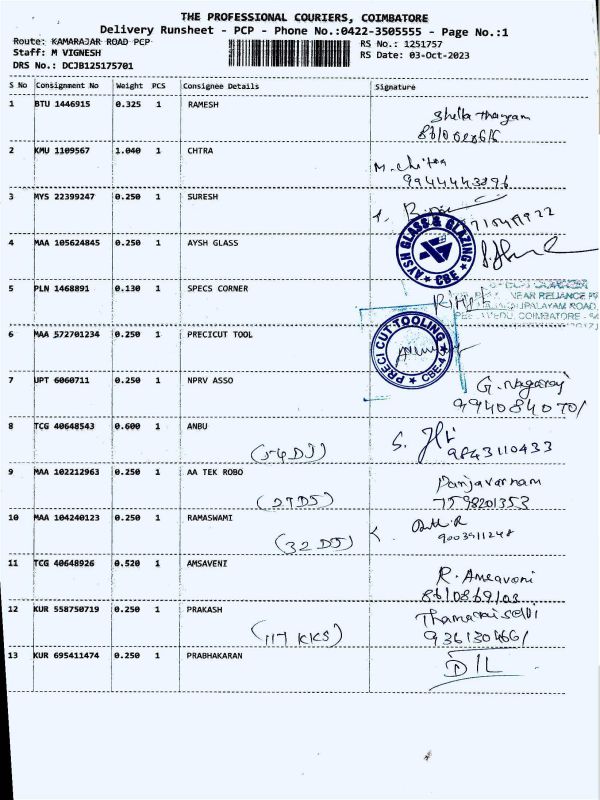 THE PROFESSIONAL COURIERS, COIMBATORE
Delivery Runsheet - PCP - Phone No.:0422-3505555 - Page No.:1
Route: KAMARAJAR ROAD PCP
RS No.: 1251757
Staff: M VIGNESH
RS Date: 03-Oct-2023
DRS No.: DCJB125175701
S No Consignment No Weight PCS Consignee Details Signature
1 BTU 1446915 0.325 1 RAMESH
2 KMU 1109567 1.040 1 CHTRA
M. Chitra
9944443896
3 MYS 22399247 0.250 1 SURESH
4 MAA 105624845 0.250 1 AYSH GLASS
AYSH GLASS & GLAZING
★ CBE ★
5 PLN 1468891 0.130 1 SPECS CORNER
NEAR RELIANCE
COIMBATORE
6 MAA 572701234 0.250 1 PRECICUT TOOL
PRECI CUT TOOLING
7 UPT 6060711 0.250 1 NPRV ASSO
G. Nagaraj
9940840701
8 TCG 40648543 0.600 1 ANBU
(54 DJ)
9843110433
9 MAA 102212963 0.250 1 AA TEK ROBO
(27DJ)
Panjavarnam
7598201353
10 MAA 104240123 0.250 1 RAMASWAMI
(32 DJ)
9003911248
11 TCG 40648926 0.520 1 AMSAVENI
8610869103
12 KUR 558750719 0.250 1 PRAKASH
(117 KKS)
Thamaraiselvi
9361304661
13 KUR 695411474 0.250 1 PRABHAKARAN
D/L